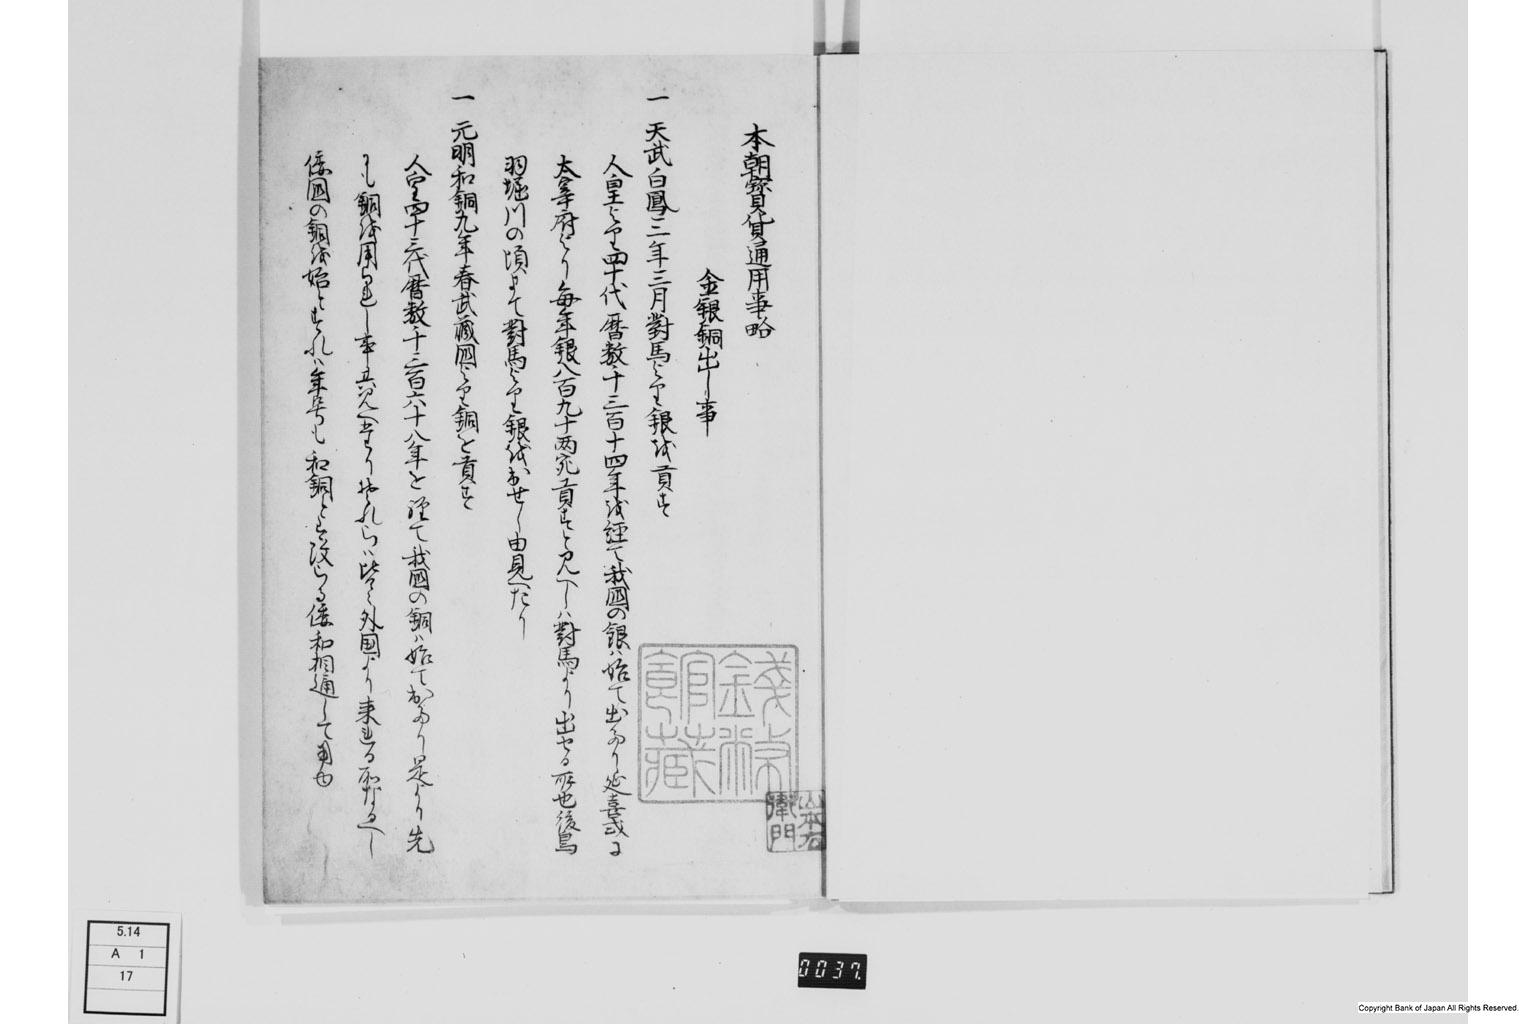 本朝寳貨通用事略
金銀銅出し事
一 天武白鳳三年三月對馬より銀を貢す
人皇より四十代暦数千三百十四年を経て我國の銀ハ始て出たり延喜式に
太宰府より毎年銀八百九十両宛貢すと見へしハ對馬より出せる所也後鳥
羽堀川の頃まて對馬より銀を出せし由見へたり
一 元明和銅九年春武蔵國より銅を貢す
人皇四十三代暦数千三百六十八年を經て我國の銅ハ始て出たり是より先
にも銅を用られし事共見へたりそれらハ皆々外国より来れる所なるへし
倭國の銅を始とすれハ年号も和銅とは改らる倭和相通して用也
錢幣館藏
山本右衛門
5.14
A 1
17
0037.
Copyright Bank of Japan All Rights Reserved.